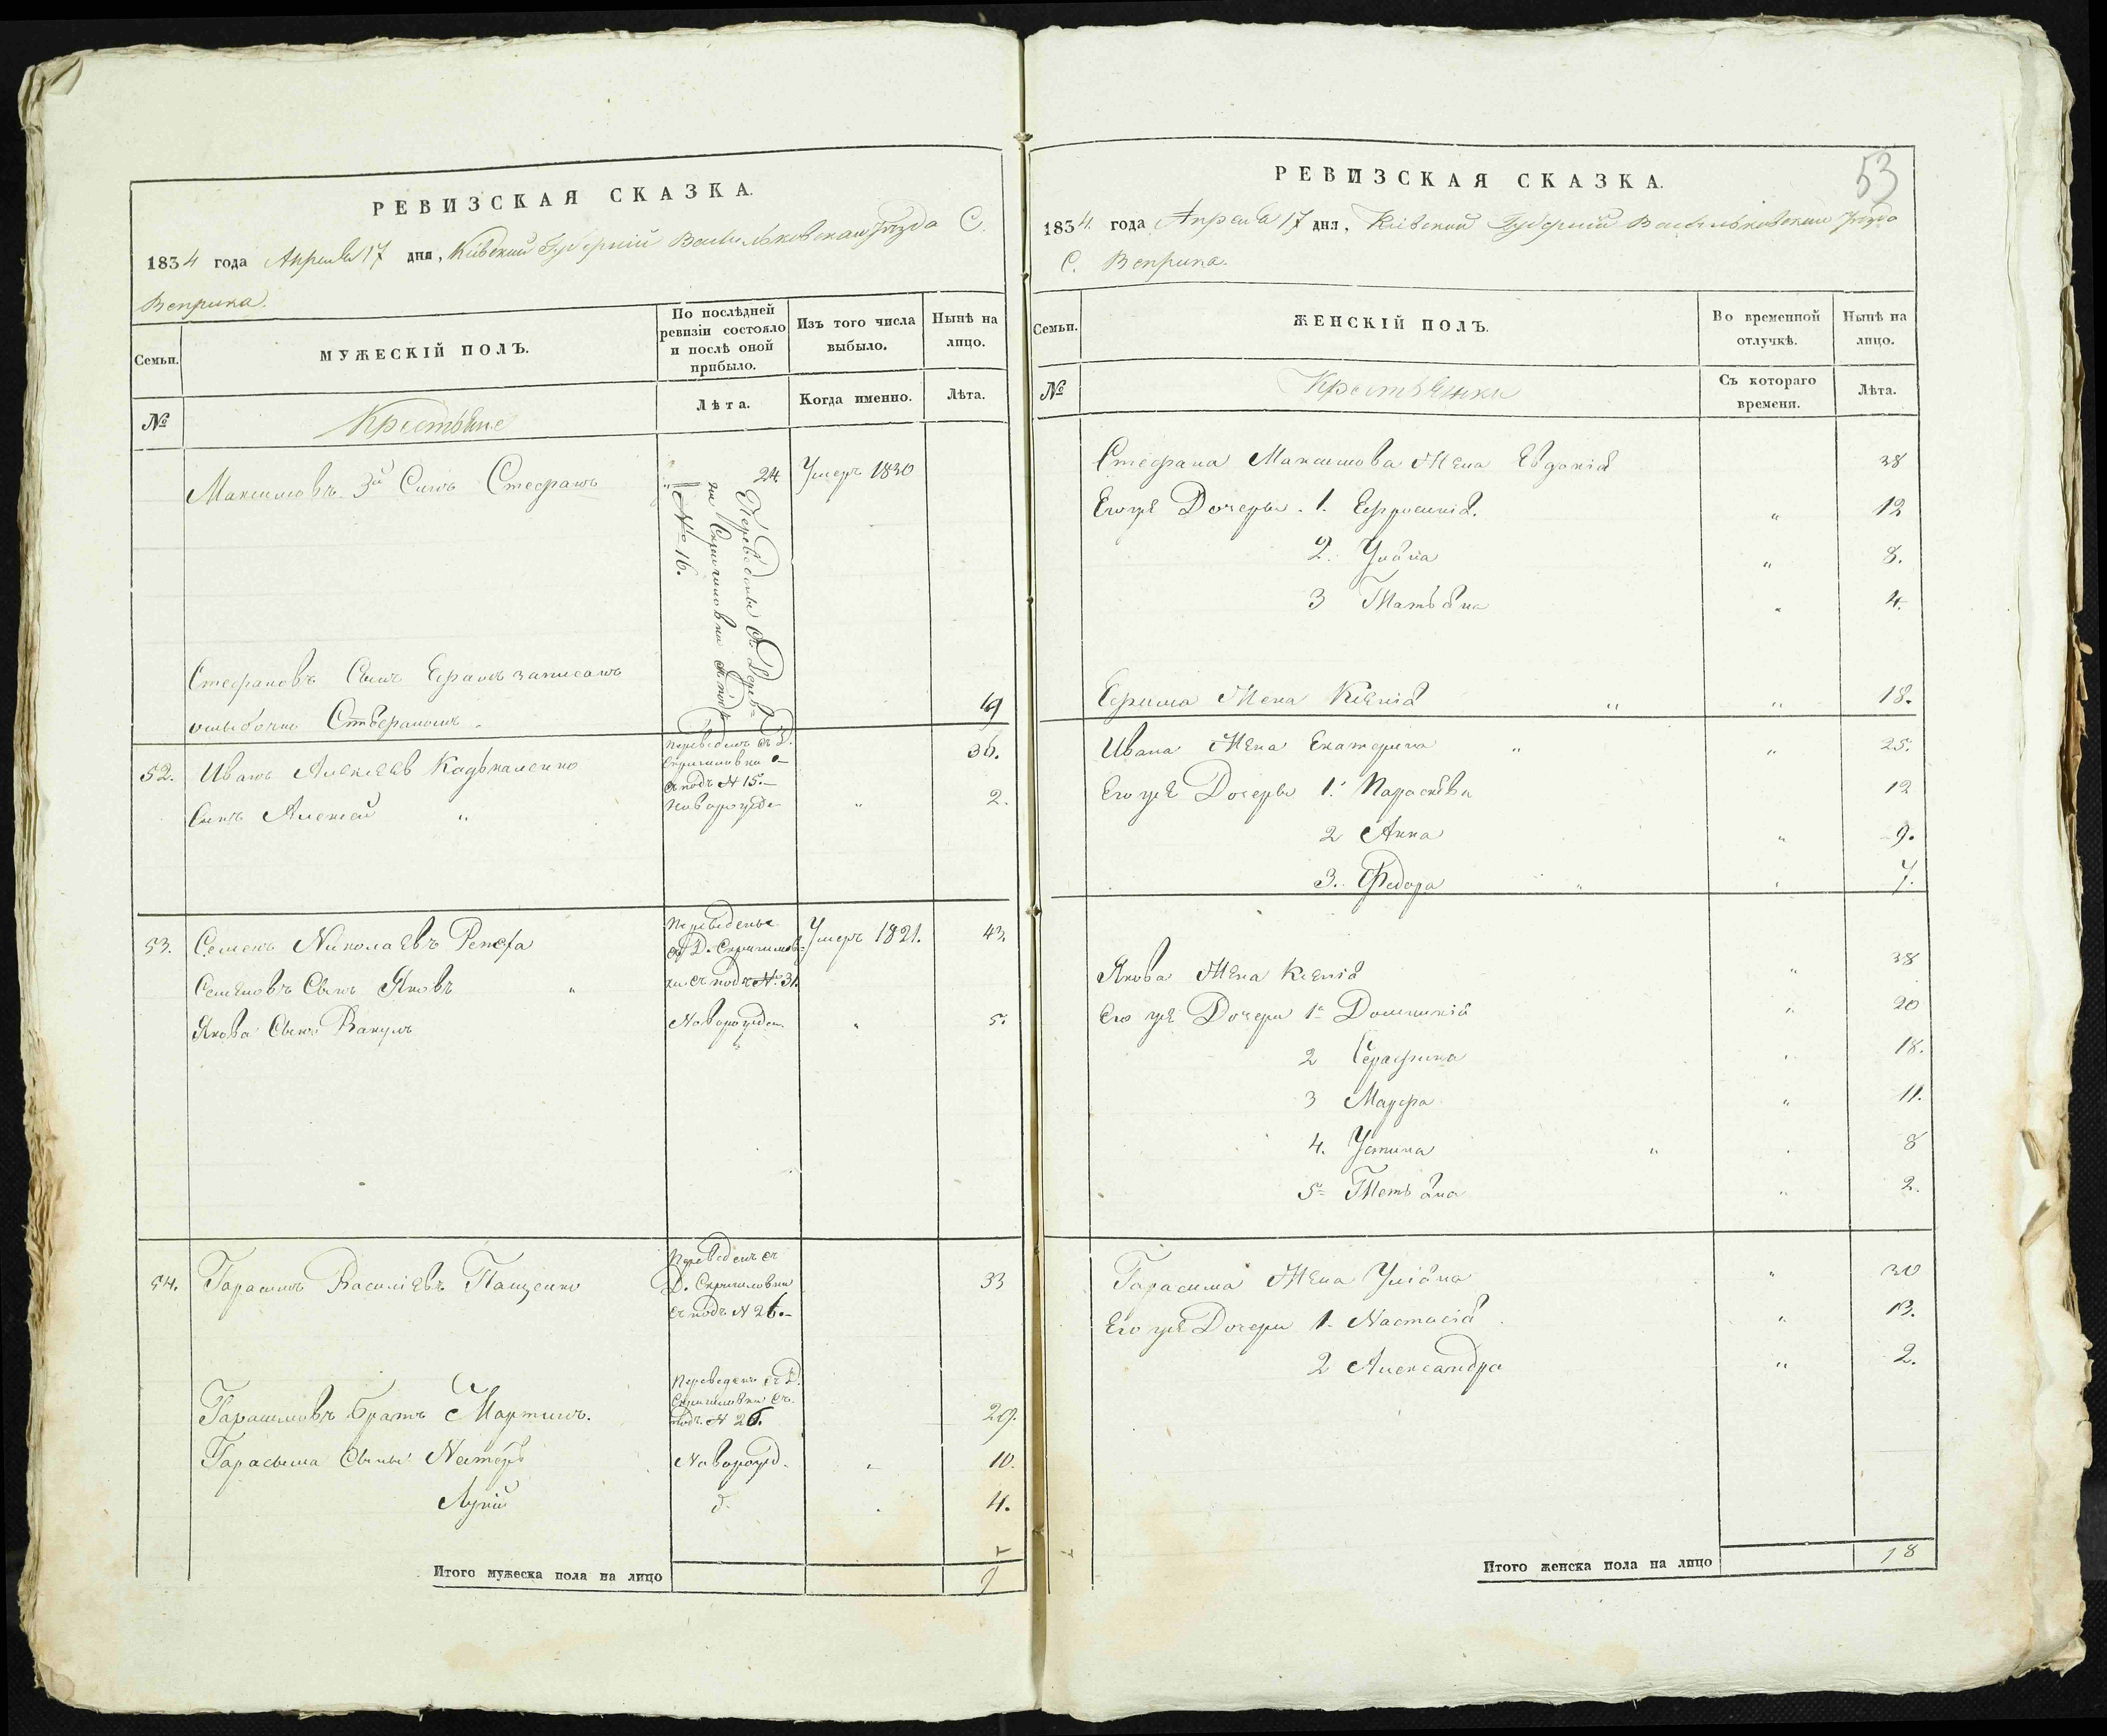 РЕВИЗСКАЯ СКАЗКА.
1834 года Апреля 17 дня, Кіевской Губерніи Васильковскаго уѣзда С.
Веприка.
Семьи.
МУЖЕСКІЙ ПОЛЪ.
По послѣдней
ревизіи состояло
и послѣ оной
прибыло.
Изъ того числа
выбыло.
Нынѣ на
лицо.
№
Крестьяне
Лѣта.
Когда именно.
Лѣта.
Максимовъ 3й Сынъ Стефанъ 24 Умеръ 1830
Переведены съ Дерев=
ни Скригиловки съ подъ
№ 16.
Стефановъ Сынъ Ефимъ записанъ
ошыбкою Стефаномъ. 19
52. Иванъ Алексѣевъ Кадькаленко Переведенъ съ Д. 36.
Скригиловки
съ подъ № 15.
Сынъ Алексей " Новорожде " 2.
53. Семенъ Николаевъ Репета Переведены Умеръ 1821. 43.
съ Д. Скригилов=
Семеновъ Сынъ Яковъ " ки съ подъ № 31.
Якова Сынъ Вакулъ Новорожден " 5.
54. Гарасимъ Василіевъ Пащенко Переведенъ съ 33
Д. Скригиловки
съ подъ № 26.
Гарасимовъ братъ Мартинъ. Переведенъ съ Д. 29.
Скригиловки съ
подъ № 26.
Гарасима Сыны Нестеръ Новорожд. " 10.
Лукій д. " 4.
Итого мужеска пола на лицо 9
53
РЕВИЗСКАЯ СКАЗКА.
1834. года Апреля 17 дня, Кіевской Губерніи Васильковскаго уѣзда
С. Веприка.
Семьи.
ЖЕНСКІЙ ПОЛЪ.
Во временной
отлучкѣ.
Нынѣ на
лицо.
№
Крестьянки
Съ котораго
времени.
Лѣта.
Стефана Максимова Жена Евдокія 38
Егоже Дочеры 1. Ефросинія. " 12
2. Уляна " 8.
3 Татьяна " 4.
Ефима Жена Ксенія " " 18.
Ивана Жена Екатерина " " 25.
Егоже Дочеры 1. Параскева 12
2 Анна " 9.
3. Федора " " 7.
Якова Жена Ксенія " 38
Его же Дочери 1= Домникія " 20
2 Серафина " 18.
3 Мавра " 11.
4. Устина " " 8
5= Татьяна " 2.
Гарасима Жена Уліяна " 30
Его же Дочери 1. Настасія " 13.
2 Александра " 2.
Итого женска пола на лицо 18